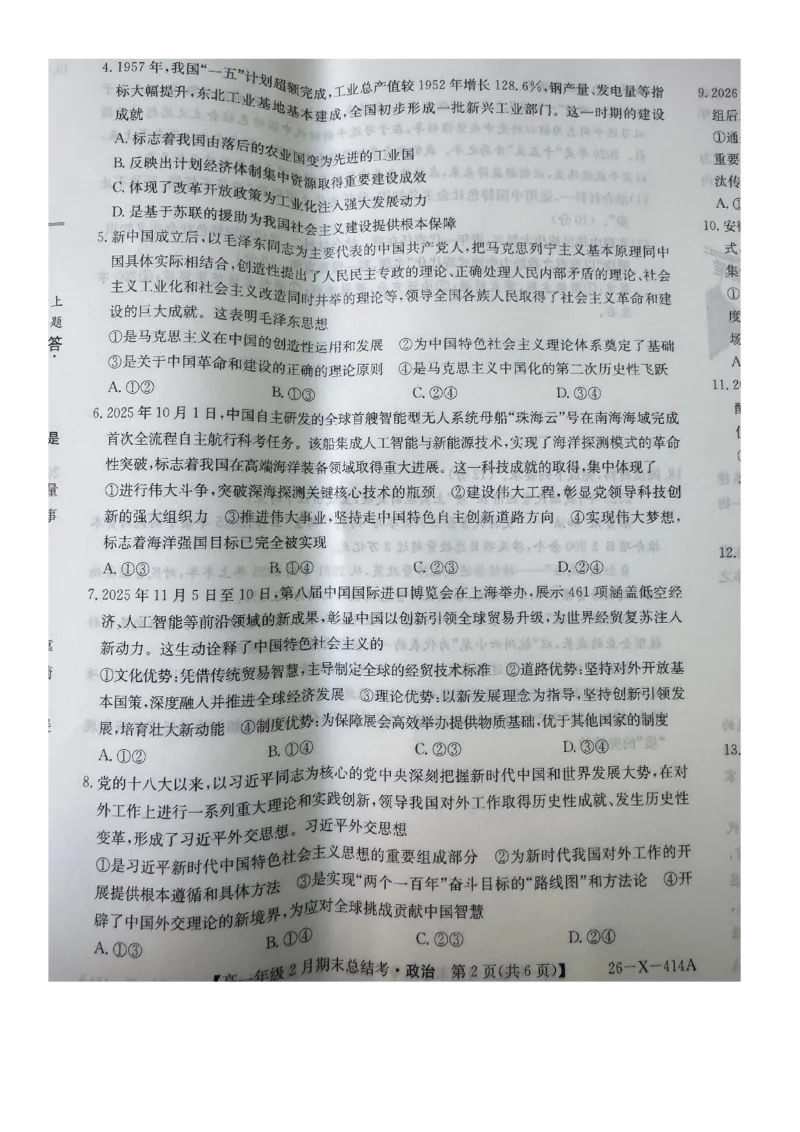 4.1957年,我国“一五”计划超额完成,工业总产值较1952年增长128.6%,钢产量、发电量等指
标大幅提升,东北工业基地基本建成,全国初步形成一批新兴工业部门。这一时期的建设
成就
A.标志着我国由落后的农业国变为先进的工业国
B.反映出计划经济体制集中资源取得重要建设成效
C.体现了改革开放政策为工业化注入强大发展动力
D.是基于苏联的援助为我国社会主义建设提供根本保障
5.新中国成立后,以毛泽东同志为主要代表的中国共产党人,把马克思列宁主义基本原理同中
国具体实际相结合,创造性提出了人民民主专政的理论、正确处理人民内部矛盾的理论、社会
主义工业化和社会主义改造同时并举的理论等,领导全国各族人民取得了社会主义革命和建
设的巨大成就。这表明毛泽东思想
①是马克思主义在中国的创造性运用和发展 ②为中国特色社会主义理论体系奠定了基础
③是关于中国革命和建设的正确的理论原则 ④是马克思主义中国化的第二次历史性飞跃
A.①② B.①③ C.②④ D.③④
6.2025年10月1日,中国自主研发的全球首艘智能型无人系统母船“珠海云”号在南海海域完成
首次全流程自主航行科考任务。该船集成人工智能与新能源技术,实现了海洋探测模式的革命
性突破,标志着我国在高端海洋装备领域取得重大进展。这一科技成就的取得,集中体现了
①进行伟大斗争,突破深海探测关键核心技术的瓶颈 ②建设伟大工程,彰显党领导科技创
新的强大组织力 ③推进伟大事业,坚持走中国特色自主创新道路方向 ④实现伟大梦想,
标志着海洋强国目标已完全被实现
A.①③ B.①④ C.②③ D.②④
7.2025年11月5日至10日,第八届中国国际进口博览会在上海举办,展示461项涵盖低空经
济、人工智能等前沿领域的新成果,彰显中国以创新引领全球贸易升级,为世界经贸复苏注入
新动力。这生动诠释了中国特色社会主义的
①文化优势:凭借传统贸易智慧,主导制定全球的经贸技术标准 ②道路优势:坚持对外开放基
本国策,深度融入并推进全球经济发展 ③理论优势:以新发展理念为指导,坚持创新引领发
展,培育壮大新动能 ④制度优势:为保障展会高效举办提供物质基础,优于其他国家的制度
A.①② B.①④ C.②③ D.③④
8.党的十八大以来,以习近平同志为核心的党中央深刻把握新时代中国和世界发展大势,在对
外工作上进行一系列重大理论和实践创新,领导我国对外工作取得历史性成就、发生历史性
变革,形成了习近平外交思想。习近平外交思想
①是习近平新时代中国特色社会主义思想的重要组成部分 ②为新时代我国对外工作的开
展提供根本遵循和具体方法 ③是实现“两个一百年”奋斗目标的“路线图”和方法论 ④开
辟了中国外交理论的新境界,为应对全球挑战贡献中国智慧
A.①③ B.①④ C.②③ D.②④
【高一年级2月期末总结考·政治 第2页(共6页)】 26-X-414A
上
题
答
是
量
事
9.2026
组后
①通
重要
汰传
A.①
10.安
式
集
①
度
场
A
11.20
12.
13.